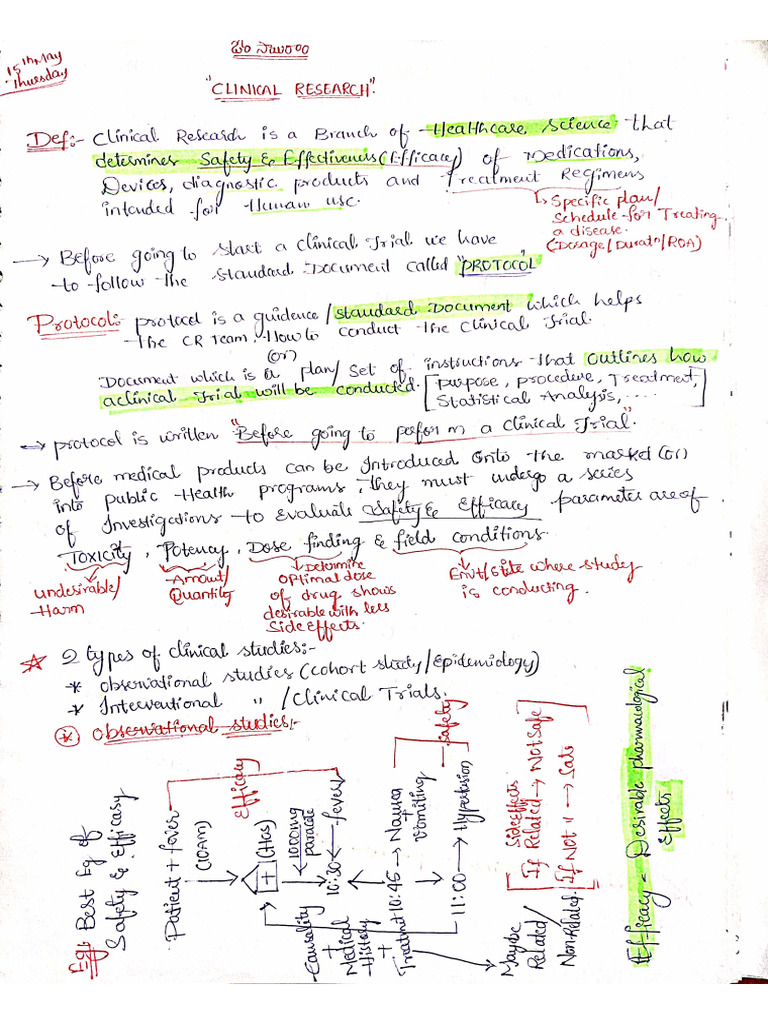 15th May
Thursday
ఓం సాయిరాం
"CLINICAL RESEARCH".
Def:- Clinical Research is a Branch of Healthcare science that
determines Safety & Effectiveness (Efficacy) of Medications,
Devices, diagnostic products and Treatment Regimens
intended for Human use.
Specific plan/
Schedule for Treating
a disease.
(Dosage/Duratn/ROA)
→ Before going to start a Clinical Trial we have
to follow the Standard Document called "PROTOCOL"
Protocol:- protocol is a guidence/standard Document which helps
the CR Team, How to conduct the Clinical Trial.
(or)
Document which is a plan/Set of instructions that outlines how
a clinical Trial will be conducted. [purpose, procedure, Treatment,
Statistical Analysis, .....]
→ protocol is written "Before going to perform a Clinical Trial".
→ Before medical products can be Introduced onto the market (or)
into public Health programs, They must undergo a series
of Investigations to Evaluate Safety & Efficacy parameter are of
Toxicity, Potency, Dose finding & field conditions.
undesirable/
Harm
Amout/
Quantity
Determine
optimal dose
of drug shows
desirable with less
Side Effects.
Envt/Site where study
is conducting.
☆ 2 types of clinical studies:-
* observational studies (cohort study/Epidemiology)
* Interventional " /Clinical Trials.
* observational studies:-
Eg: Best Eg of
Safety & Efficacy
Patient + fever
(10AM)
Efficacy
+ (Hos)
1000mg
paracte
10:30 ← fever↓
10:45 → Nausea
+
Vomiting
11:00 → Hypertension
Safety
Causality
+
Medical
History
+
Treatmnt
Maybe
Related/
Non-Related
Side effects
If Related → Not Safe
If Not " → Safe
Efficacy = Desirable pharmacological
Effects